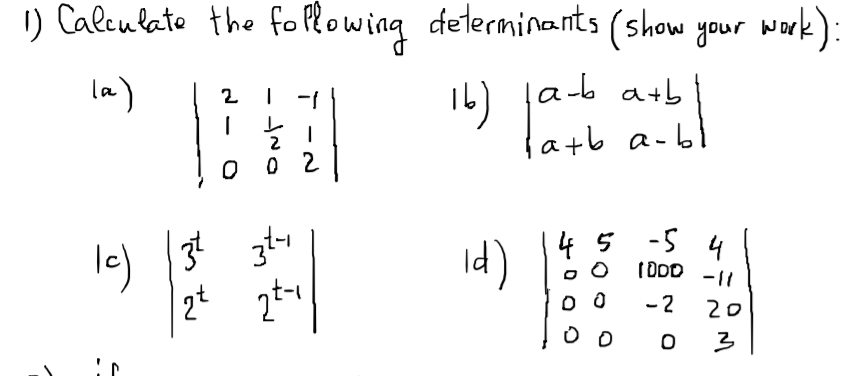 1) Calculate the following determinants (show your work):
1a) | 2 1 -1 |
| 1 1/2 1 |
| 0 0 2 |
1b) | a-b a+b |
| a+b a-b |
1c) | 3^t 3^{t-1} |
| 2^t 2^{t-1} |
1d) | 4 5 -5 4 |
| 0 0 1000 -11 |
| 0 0 -2 20 |
| 0 0 0 3 |